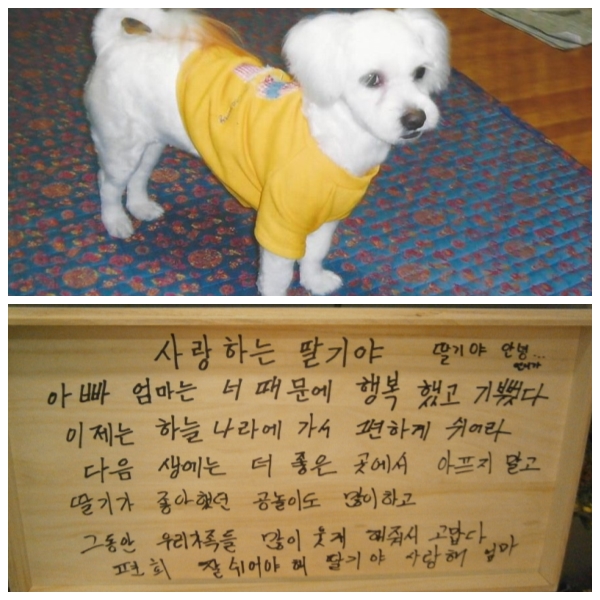 사랑하는 딸기야
딸기야 안녕...
언니가
아빠 엄마는 너 때문에 행복 했고 기뻤다
이제는 하늘나라에 가서 편하게 쉬어라
다음 생에는 더 좋은 곳에서 아프지 말고
딸기가 좋아했던 공놀이도 많이하고
그동안 우리가족들 많이 웃게 해줘서 고맙다
편희 잘 쉬어야 해 딸기야 사랑해 엄마